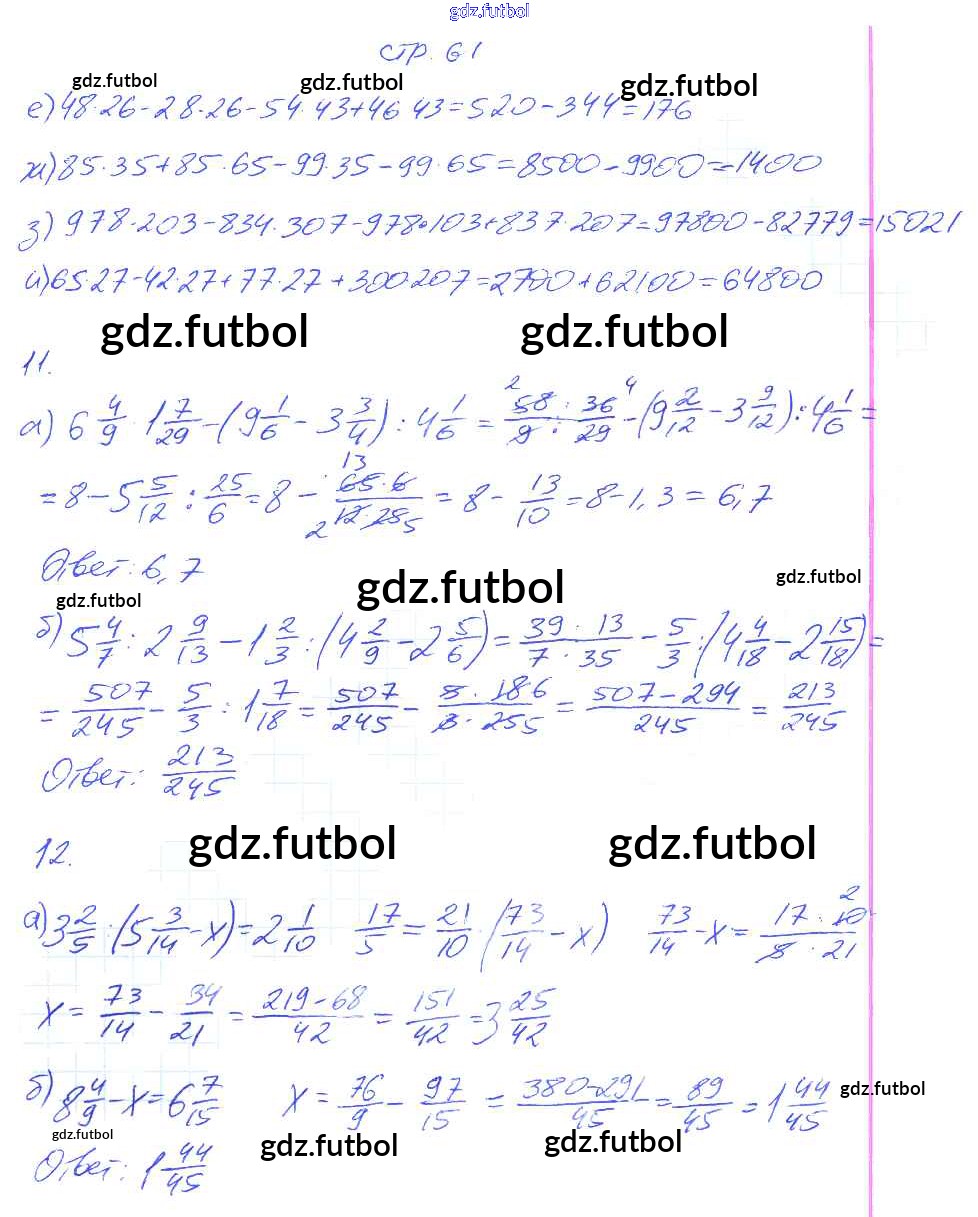 gdz.futbol
стр. 61
gdz.futbol gdz.futbol gdz.futbol
е) 48·26-28·26-54·43+46 43=520-344=176
ж) 85·35+85·65-99·35-99·65=8500-9900=-1400
з) 978·203-834·307-978·103+837·207=97800-82779=15021
и) 65·27-42·27+77·27+300·207=2700+62100=64800
gdz.futbol gdz.futbol
11.
а) 6 4/9 · 1 7/29 - (9 1/6 - 3 3/4) : 4 1/6 = 58 : 36 / 9 : 29 2 4 - (9 2/12 - 3 9/12) : 4 1/6 =
= 8 - 5 5/12 : 25/6 = 8 - 65·6 / 12·25 13 2 5 = 8 - 13/10 = 8-1,3 = 6,7
Ответ: 6,7
gdz.futbol gdz.futbol gdz.futbol
б) 5 4/7 : 2 9/13 - 1 2/3 : (4 2/9 - 2 5/6) = 39 · 13 / 7 · 35 - 5/3 : (4 4/18 - 2 15/18) =
= 507/245 - 5/3 : 1 7/18 = 507/245 - 5 · 18 6 / 3 · 25 5 = 507-294 / 245 = 213/245
Ответ: 213/245
12.
gdz.futbol gdz.futbol
а) 3 2/5 : (5 3/14 - x) = 2 1/10 17/5 = 21/10 · (73/14 - x) 73/14 - x = 17 · 10 2 / 5 · 21
x = 73/14 - 34/21 = 219-68 / 42 = 151/42 = 3 25/42
б) 8 4/9 - x = 6 7/15 x = 76/9 - 97/15 = 380-291 / 45 = 89/45 = 1 44/45
gdz.futbol
gdz.futbol gdz.futbol gdz.futbol
Ответ: 1 44/45